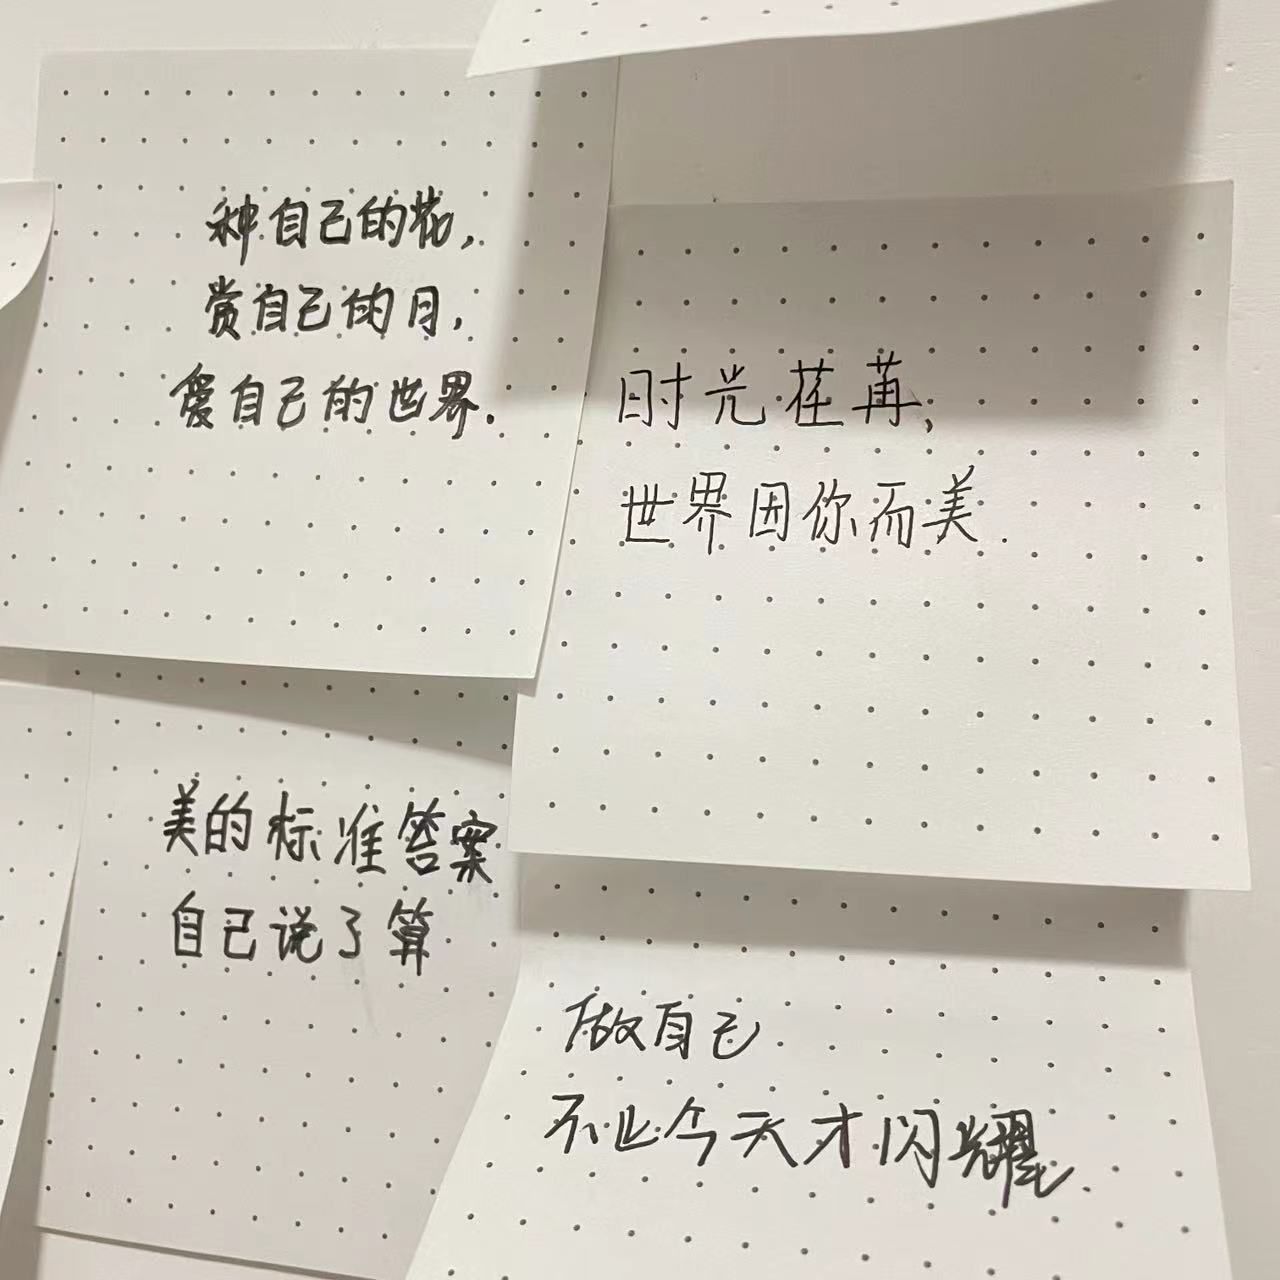 种自己的花，
赏自己的月，
爱自己的世界.
时光荏苒，
世界因你而美.
美的标准答案
自己说了算
做自己
不止今天才闪耀.